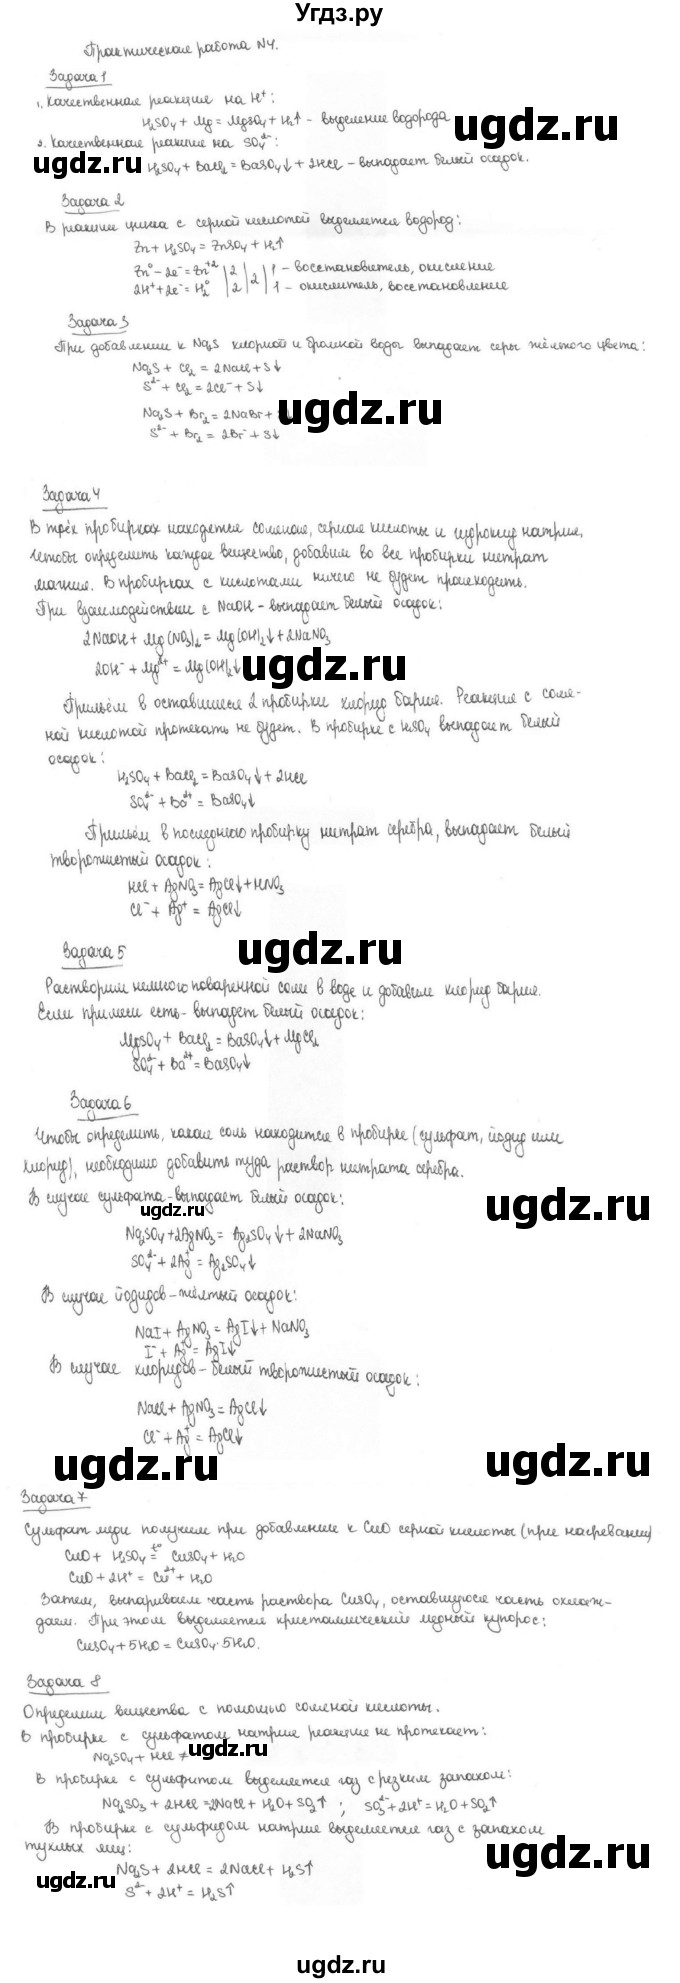 Угдз.ру
Практическая работа №4.
Задача 1
1. Качественная реакция на H⁺:
H₂SO₄ + Mg = MgSO₄ + H₂↑ - выделение водорода
ugdz.ru
2. Качественная реакция на SO₄²⁻:
ugdz.ru
H₂SO₄ + BaCl₂ = BaSO₄↓ + 2HCl – выпадает белый осадок.
Задача 2
В реакции цинка с серной кислотой выделяется водород:
Zn + H₂SO₄ = ZnSO₄ + H₂↑
Zn⁰ – 2e⁻ = Zn⁺² | 2 | 2 | 1 – восстановитель, окисление
2H⁺ + 2e⁻ = H₂⁰ | 2 | 1 – окислитель, восстановление
Задача 3
При добавлении к Na₂S хлорной и бромной воды выпадает серы жёлтого цвета:
Na₂S + Cl₂ = 2NaCl + S↓
S²⁻ + Cl₂ = 2Cl⁻ + S↓
ugdz.ru
Na₂S + Br₂ = 2NaBr + S↓
S²⁻ + Br₂ = 2Br⁻ + S↓
Задача 4
В трёх пробирках находятся соляная, серная кислоты и гидроксид натрия.
Чтобы определить каждое вещество, добавим во все пробирки нитрат
магния. В пробирках с кислотами ничего не будет происходить.
При взаимодействии с NaOH – выпадает белый осадок:
2NaOH + Mg(NO₃)₂ = Mg(OH)₂↓ + 2NaNO₃
2OH⁻ + Mg²⁺ = Mg(OH)₂↓
ugdz.ru
Прильём в оставшиеся 2 пробирки хлорид бария. Реакция с соля-
ной кислотой протекать не будет. В пробирке с H₂SO₄ выпадает белый
осадок:
H₂SO₄ + BaCl₂ = BaSO₄↓ + 2HCl
SO₄²⁻ + Ba²⁺ = BaSO₄↓
Прильём в последнюю пробирку нитрат серебра, выпадает белый
творожистый осадок:
HCl + AgNO₃ = AgCl↓ + HNO₃
Cl⁻ + Ag⁺ = AgCl↓
ugdz.ru
Задача 5
Растворим немного поваренной соли в воде и добавим хлорид бария.
Если примеси есть - выпадет белый осадок:
MgSO₄ + BaCl₂ = BaSO₄↓ + MgCl₂
SO₄²⁻ + Ba²⁺ = BaSO₄↓
Задача 6
Чтобы определить, какая соль находится в пробирке (сульфат, йодид или
хлорид), необходимо добавить туда раствор нитрата серебра.
В случае сульфата - выпадает белый осадок:
ugdz.ru
ugdz.ru
Na₂SO₄ + 2AgNO₃ = Ag₂SO₄↓ + 2NaNO₃
SO₄²⁻ + 2Ag⁺ = Ag₂SO₄↓
В случае йодидов – жёлтый осадок:
NaI + AgNO₃ = AgI↓ + NaNO₃
I⁻ + Ag⁺ = AgI↓
В случае хлоридов – белый творожистый осадок:
NaCl + AgNO₃ = AgCl↓
Cl⁻ + Ag⁺ = AgCl↓
ugdz.ru
ugdz.ru
Задача 7
Сульфат меди получим при добавление к CuO серной кислоты (при нагревании)
CuO + H₂SO₄ =t° CuSO₄ + H₂O
CuO + 2H⁺ = Cu²⁺ + H₂O
Затем, выпариваем часть раствора CuSO₄, оставшуюся часть охлаж-
даем. При этом выделяется кристаллический медный купорос:
CuSO₄ + 5H₂O = CuSO₄·5H₂O.
Задача 8
Определим вещества с помощью соляной кислоты.
В пробирке с сульфатом натрия реакция не протекает:
Na₂SO₄ + HCl ≠
ugdz.ru
В пробирке с сульфитом выделяется газ с резким запахом:
Na₂SO₃ + 2HCl = 2NaCl + H₂O + SO₂↑ ; SO₃²⁻ + 2H⁺ = H₂O + SO₂↑
В пробирке с сульфидом натрия выделяется газ с запахом
тухлых яиц:
ugdz.ru
Na₂S + 2HCl = 2NaCl + H₂S↑
ugdz.ru
S²⁻ + 2H⁺ = H₂S↑
ugdz.ru